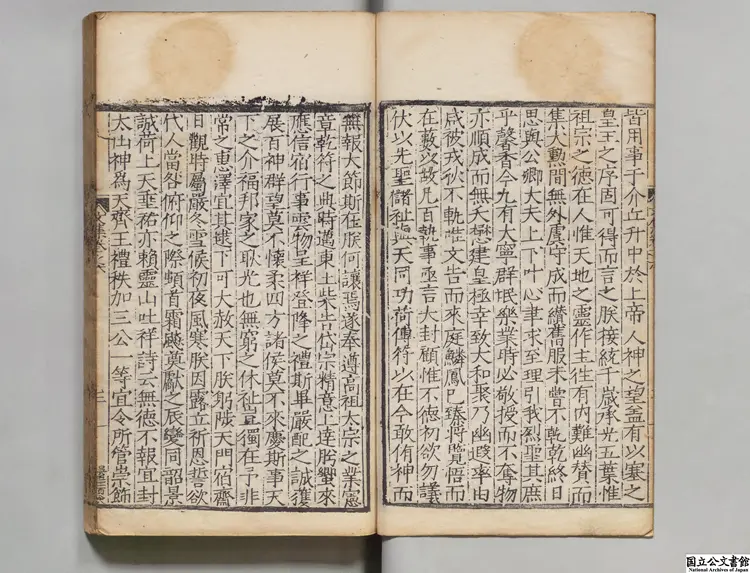 皆用事于介丘升中於上帝人神之望盖有以塞之
皇王之序固可得而言之朕接統千歳承光五葉惟
祖宗之徳在人惟天地之靈作主徃有内難幽賛而
集大勲間無外虞守成而纉舊服未嘗不乾乾終日
思與公卿大夫上下叶心聿求至理引我烈聖其庶
乎馨香今九有大寧群氓樂業時必敬授而不奪物
亦順成而無夭懋建皇極幸致大和聚乃幽遐率由
感被戎狄不軌惟文告而來庭鱗鳳已臻将覽悟而
在藪以故凡百執事亟言大封顧惟不徳初欲勿議
伏以先聖儲祉與天同功荷傳符以在今敢侑神而
無報大節斯在朕何讓焉遂奉遵高祖太宗之業憲
章乾符之典時邁東土柴告岱宗精意上達肹蠁來
應信宿行事雲物呈祥登降之禮斯畢嚴配之誠獲
展百神群望莫不懷柔四方諸侯莫不來慶斯事天
一之介福邦家之耿光也無窮之休祉豈獨在予非
常之惠澤宜其逮下可大赦天下朕躬陟天門宿齋
日觀時屬嚴冬雪候初夜風寒朕因露立祈恩誓欲
代人當咎俯仰之際頓首霜飈奠獻之辰變同韶景
誠荷上天垂祐亦賴靈山吐祥詩云無徳不報宜封
太山神爲天齊王禮秩加三公一等宜令所管崇飾
国立公文書館
National Archives of Japan